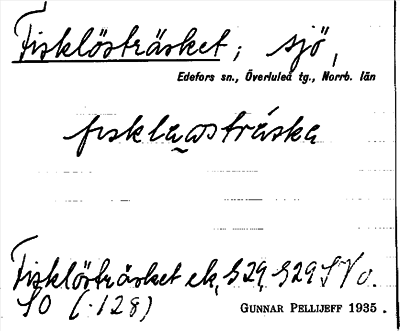 Fisklösträsket; sjö,
Edefors sn., Överluleå tg., Norrb. län
fisklaasträska
Fisklösträsket ek, 829, 829 SV o.
SO (·128)
GUNNAR PELLIJEFF 1935.